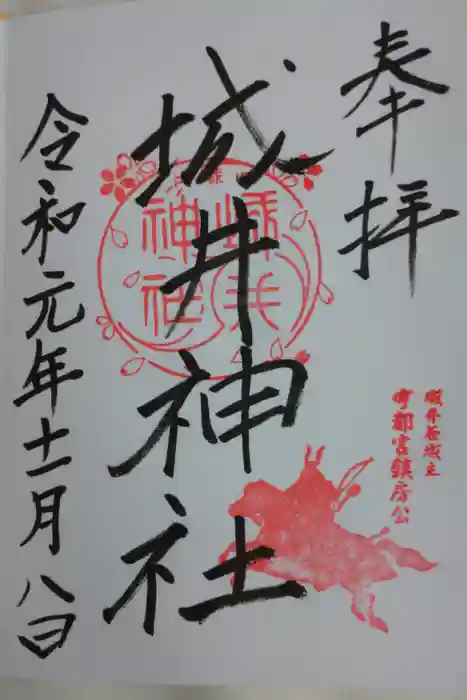 奉拝
城井谷城主
宇都宮鎮房公
城井神社
令和元年十一月八日